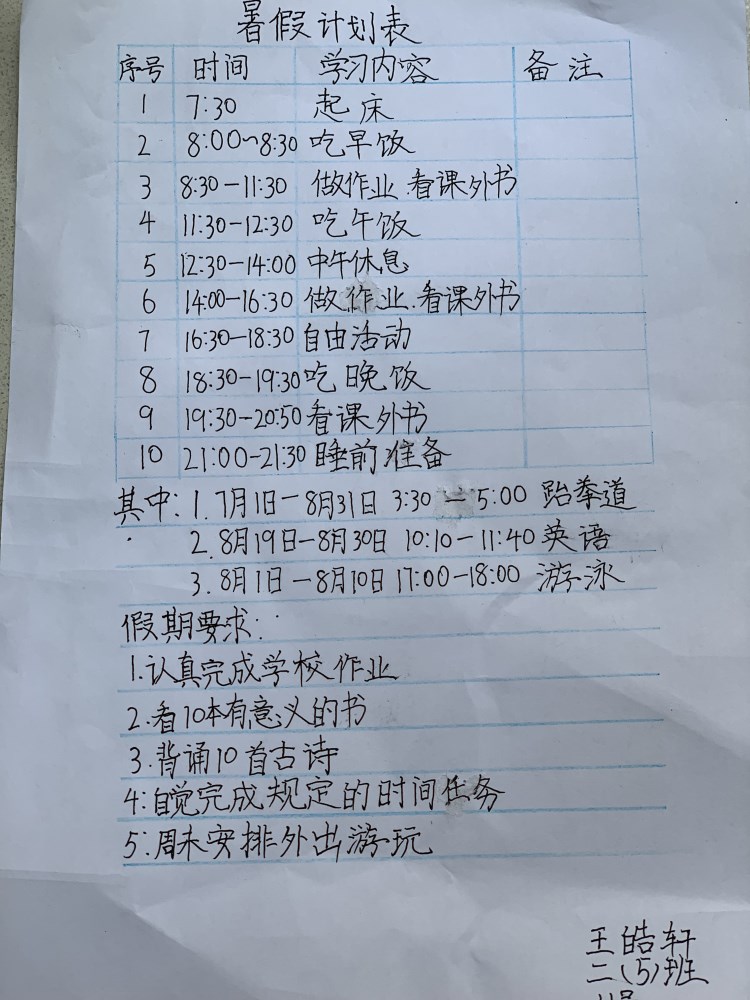 暑假计划表
序号 时间 学习内容 备注
1 7:30 起床
2 8:00~8:30 吃早饭
3 8:30-11:30 做作业.看课外书
4 11:30-12:30 吃午饭
5 12:30-14:00 中午休息
6 14:00-16:30 做作业.看课外书
7 16:30-18:30 自由活动
8 18:30-19:30 吃晚饭
9 19:30-20:50 看课外书
10 21:00-21:30 睡前准备
其中:1.7月1日-8月31日 3:30-5:00 跆拳道
2.8月19日-8月30日 10:10-11:40 英语
3.8月1日-8月10日 17:00-18:00 游泳
假期要求:
1.认真完成学校作业
2.看10本有意义的书
3.背诵10首古诗
4:自觉完成规定的时间任务
5:周末安排外出游玩
王皓轩
二(5)班